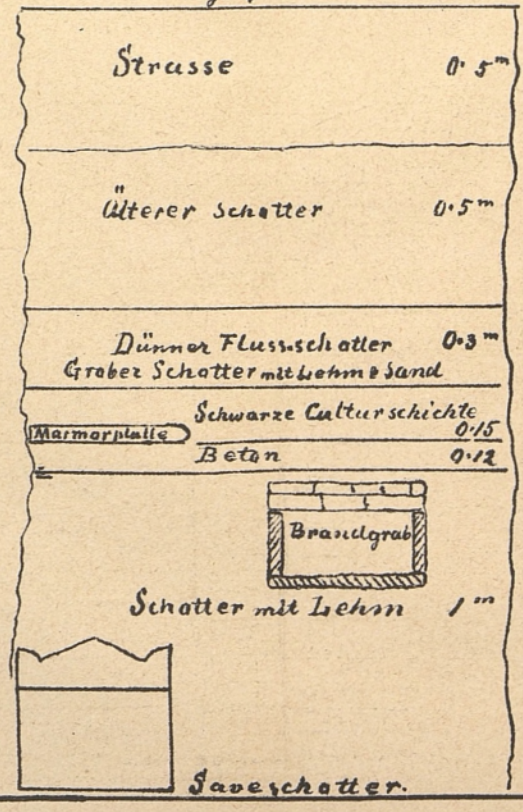 Strasse 0·5 m
Älterer Schotter 0·5 m
Dünner Flussschotter 0·3 m
Grober Schotter mit Lehm & Sand
Schwarze Culturschichte
0.15
Marmorplatte
Beton 0.12
Brandgrab
Schotter mit Lehm 1 m
Saveschotter.